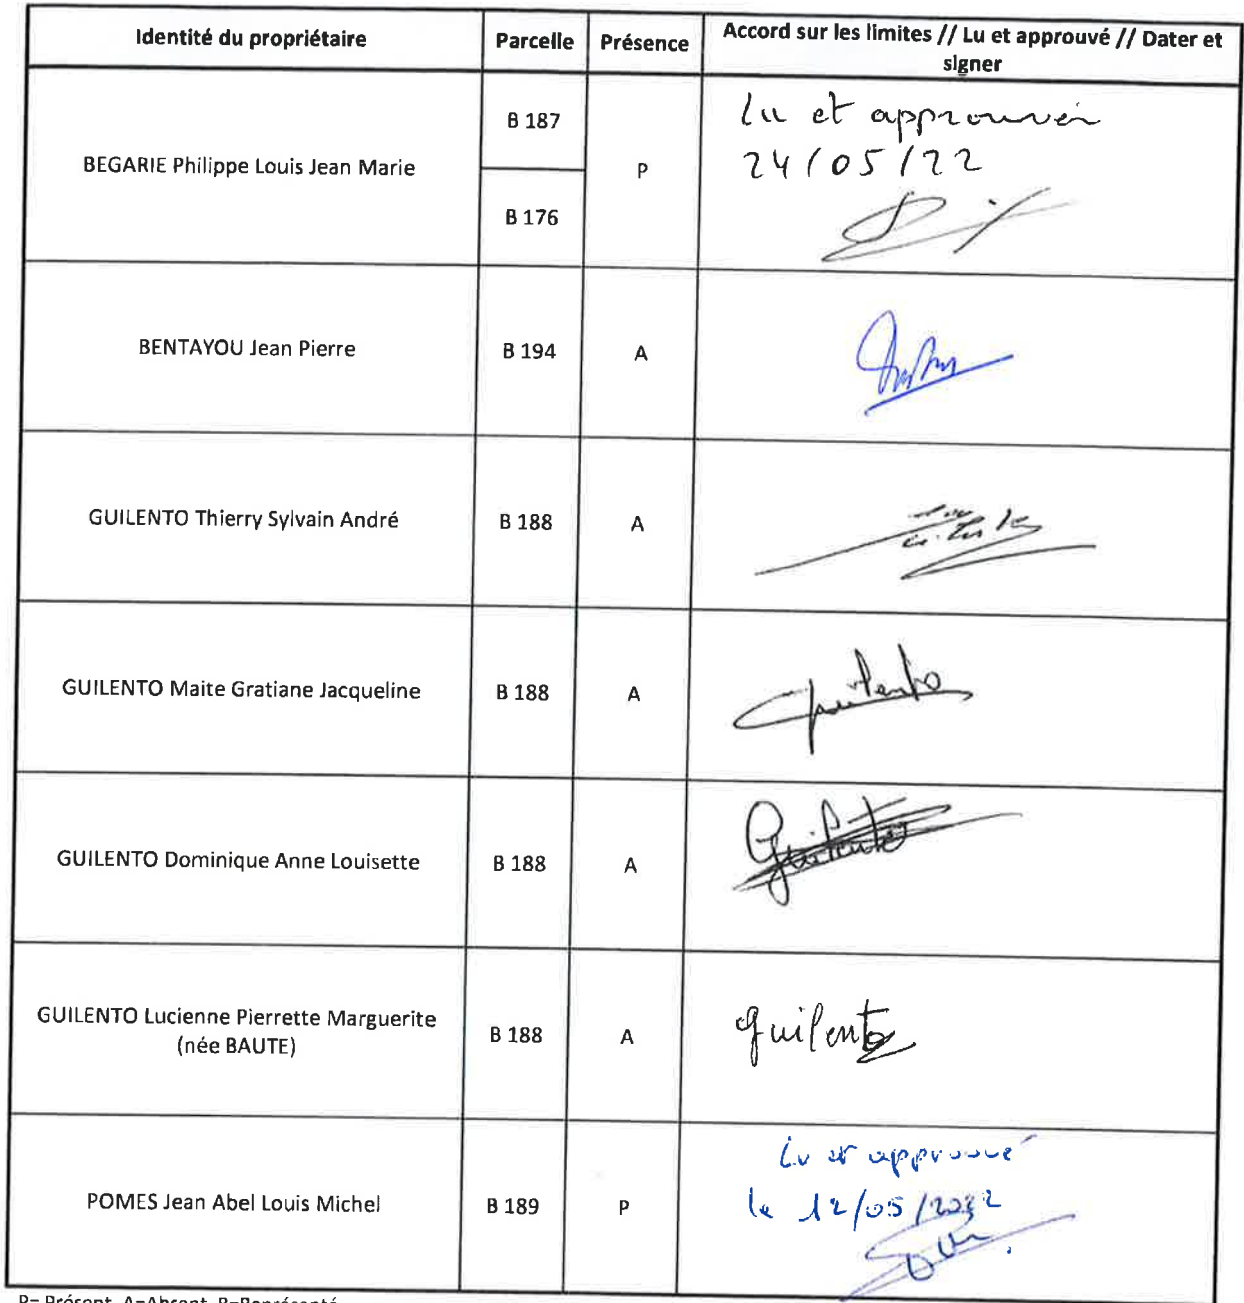 Identité du propriétaire
Parcelle
Présence
Accord sur les limites // Lu et approuvé // Dater et
signer
BEGARIE Philippe Louis Jean Marie
B 187
B 176
P
Lu et approuver
24/05/22
BENTAYOU Jean Pierre
B 194
A
GUILENTO Thierry Sylvain André
B 188
A
GUILENTO Maite Gratiane Jacqueline
B 188
A
Guilento
GUILENTO Dominique Anne Louisette
B 188
A
Guilento
GUILENTO Lucienne Pierrette Marguerite
(née BAUTE)
B 188
A
guilento
POMES Jean Abel Louis Michel
B 189
P
Lu et approuvé
le 12/05/2022
P= Présent, A=Absent, R=Représenté